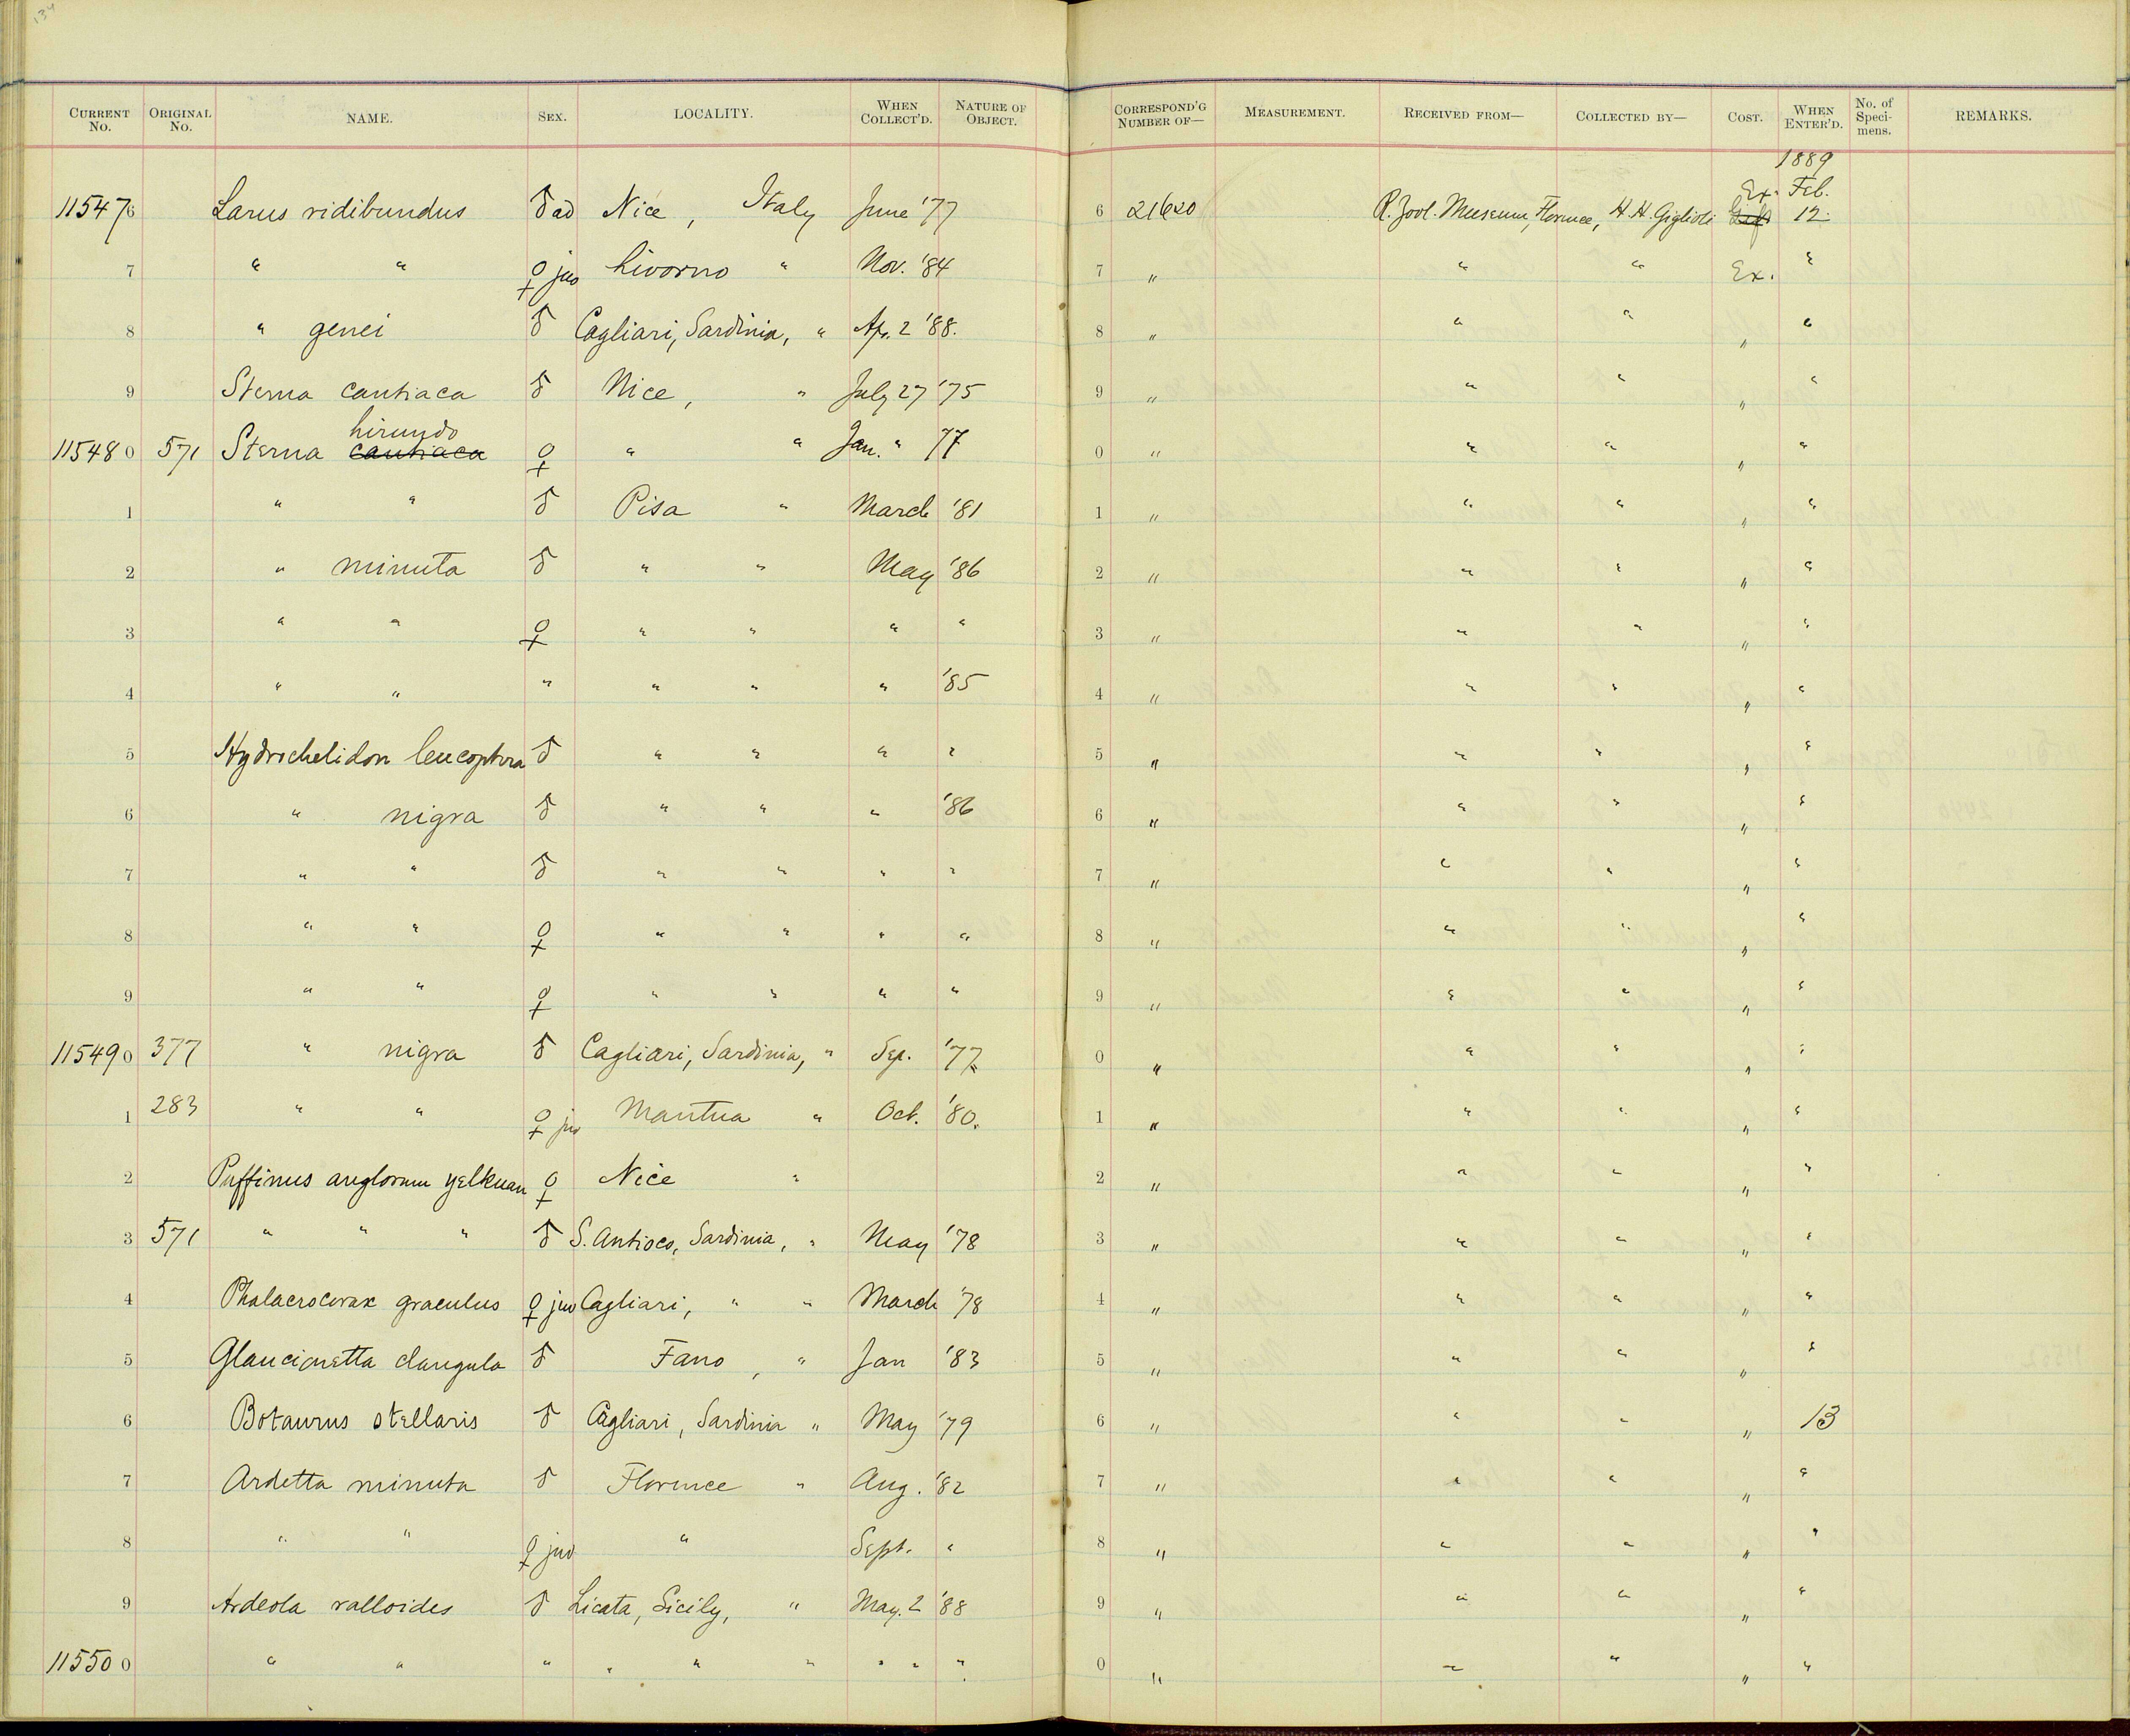 134
CURRENT No. ORIGINAL No. NAME. SEX. LOCALITY. WHEN COLLECT'D. NATURE OF OBJECT. CORRESPOND'G NUMBER OF— MEASUREMENT. RECEIVED FROM— COLLECTED BY— COST. WHEN ENTER'D. No. of Specimens. REMARKS.
1889
115476 Larus ridibundus ♂ ad Nice, Italy June '77 6 21620 R. Zool. Museum, Florence, H. H. Giglioli Ex. Gift Feb. 12.
7 " " ♀ juv Livorno " Nov. '84 7 " " " Ex. "
8 " genei ♂ Cagliari, Sardinia, " Ap. 2 '88. 8 " " " " "
9 Sterna cantiaca ♂ Nice, " July 27 '75 9 " " " " "
hirundo
115480 571 Sterna cantiaca ♀ " " Jan. " 77 0 " " " " "
1 " " ♂ Pisa " March '81 1 " " " " "
2 " minuta ♂ " " May '86 2 " " " " "
3 " " ♀ " " " " 3 " " " " "
4 " " " " " " '85 4 " " " " "
5 Hydrochelidon leucoptera ♂ " " " " 5 " " " " "
6 " nigra ♂ " " " '86 6 " " " " "
7 " " ♂ " " " " 7 " " " " "
8 " " ♀ " " " " 8 " " " " "
9 " " ♀ " " " " 9 " " " " "
115490 377 " nigra ♂ Cagliari, Sardinia, " Sep. '77 0 " " " " "
1 283 " " ♀ juv Mantua " Oct. '80. 1 " " " " "
2 Puffinus anglorum yelkuan ♀ Nice " 2 " " " " "
3 571 " " " ♂ S. Antioco, Sardinia, " May '78 3 " " " " "
4 Phalacrocorax graculus ♀ juv Cagliari, " " March '78 4 " " " " "
5 Glaucionetta clangula ♂ Fano, " Jan '83 5 " " " " "
6 Botaurus stellaris ♂ Cagliari, Sardinia " May '79 6 " " " " 13
7 Ardetta minuta ♂ Florence " Aug. '82 7 " " " " "
8 " " ♀ juv " Sept. " 8 " " " " "
9 Ardeola ralloides ♂ Licata, Sicily, " May. 2 '88 9 " " " " "
115500 " " " " " " " " " 0 " " " " "